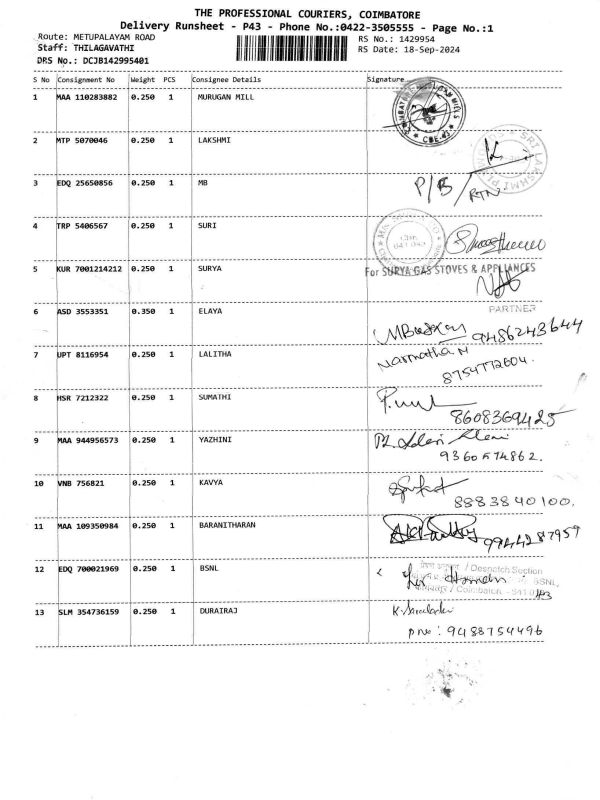 THE PROFESSIONAL COURIERS, COIMBATORE
Delivery Runsheet - P43 - Phone No.:0422-3505555 - Page No.:1
Route: METUPALAYAM ROAD RS No.: 1429954
Staff: THILAGAVATHI RS Date: 18-Sep-2024
DRS No.: DCJB142995401
S No Consignment No Weight PCS Consignee Details Signature
1 MAA 110283882 0.250 1 MURUGAN MILL
2 MTP 5070046 0.250 1 LAKSHMI
3 EDQ 25650856 0.250 1 MB P/B/RTN
4 TRP 5406567 0.250 1 SURI
5 KUR 7001214212 0.250 1 SURYA For SURYA GAS STOVES & APPLIANCES
PARTNER
6 ASD 3553351 0.350 1 ELAYA 9486243644
7 UPT 8116954 0.250 1 LALITHA Narmatha M
8754772604.
8 HSR 7212322 0.250 1 SUMATHI
8608369425
9 MAA 944956573 0.250 1 YAZHINI
9360574862.
10 VNB 756821 0.250 1 KAVYA
8883840100.
11 MAA 109350984 0.250 1 BARANITHARAN 9944287959
12 EDQ 700021969 0.250 1 BSNL / Despatch Section
BSNL,
/ Coimbatore - 641043
13 SLM 354736159 0.250 1 DURAIRAJ
pno: 9488754496